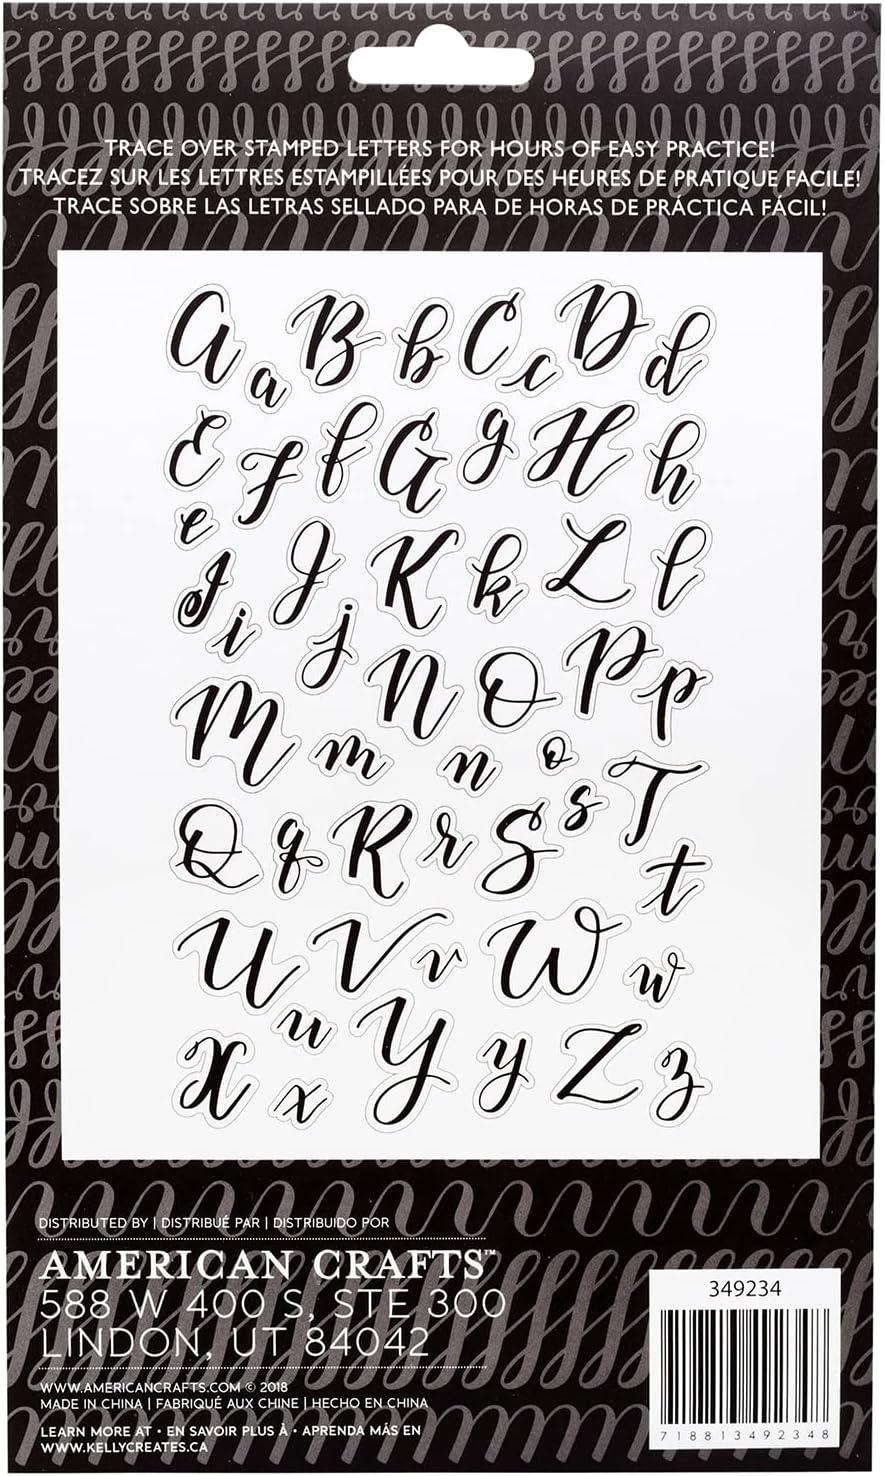 TRACE OVER STAMPED LETTERS FOR HOURS OF EASY PRACTICE!
TRACEZ SUR LES LETTRES ESTAMPILLÉES POUR DES HEURES DE PRATIQUE FACILE!
TRACE SOBRE LAS LETRAS SELLADO PARA DE HORAS DE PRÁCTICA FÁCIL!
A a B b C c D d
E e F f G g H h
I i J j K k L l
M m N n O o P p
Q q R r S s T t
U u V v W w
X x Y y Z z
DISTRIBUTED BY | DISTRIBUÉ PAR | DISTRIBUIDO POR
AMERICAN CRAFTS™
588 W 400 S, STE 300
LINDON, UT 84042
WWW.AMERICANCRAFTS.COM © 2018
MADE IN CHINA | FABRIQUÉ AUX CHINE | HECHO EN CHINA
LEARN MORE AT • EN SAVOIR PLUS À • APRENDA MÁS EN
WWW.KELLYCREATES.CA
349234
718813492348